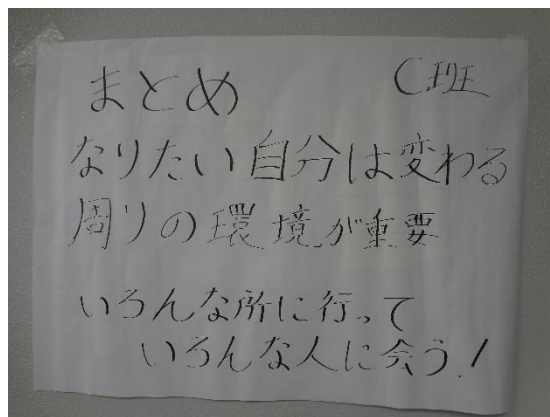 まとめ C班
なりたい自分は変わる
周りの環境が重要
いろんな所に行って
いろんな人に会う!